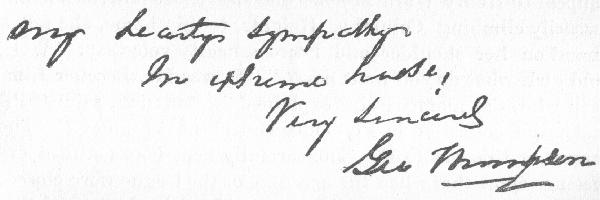 my hearty sympathy
In extreme haste,
Very sincerely
Geo Thompson